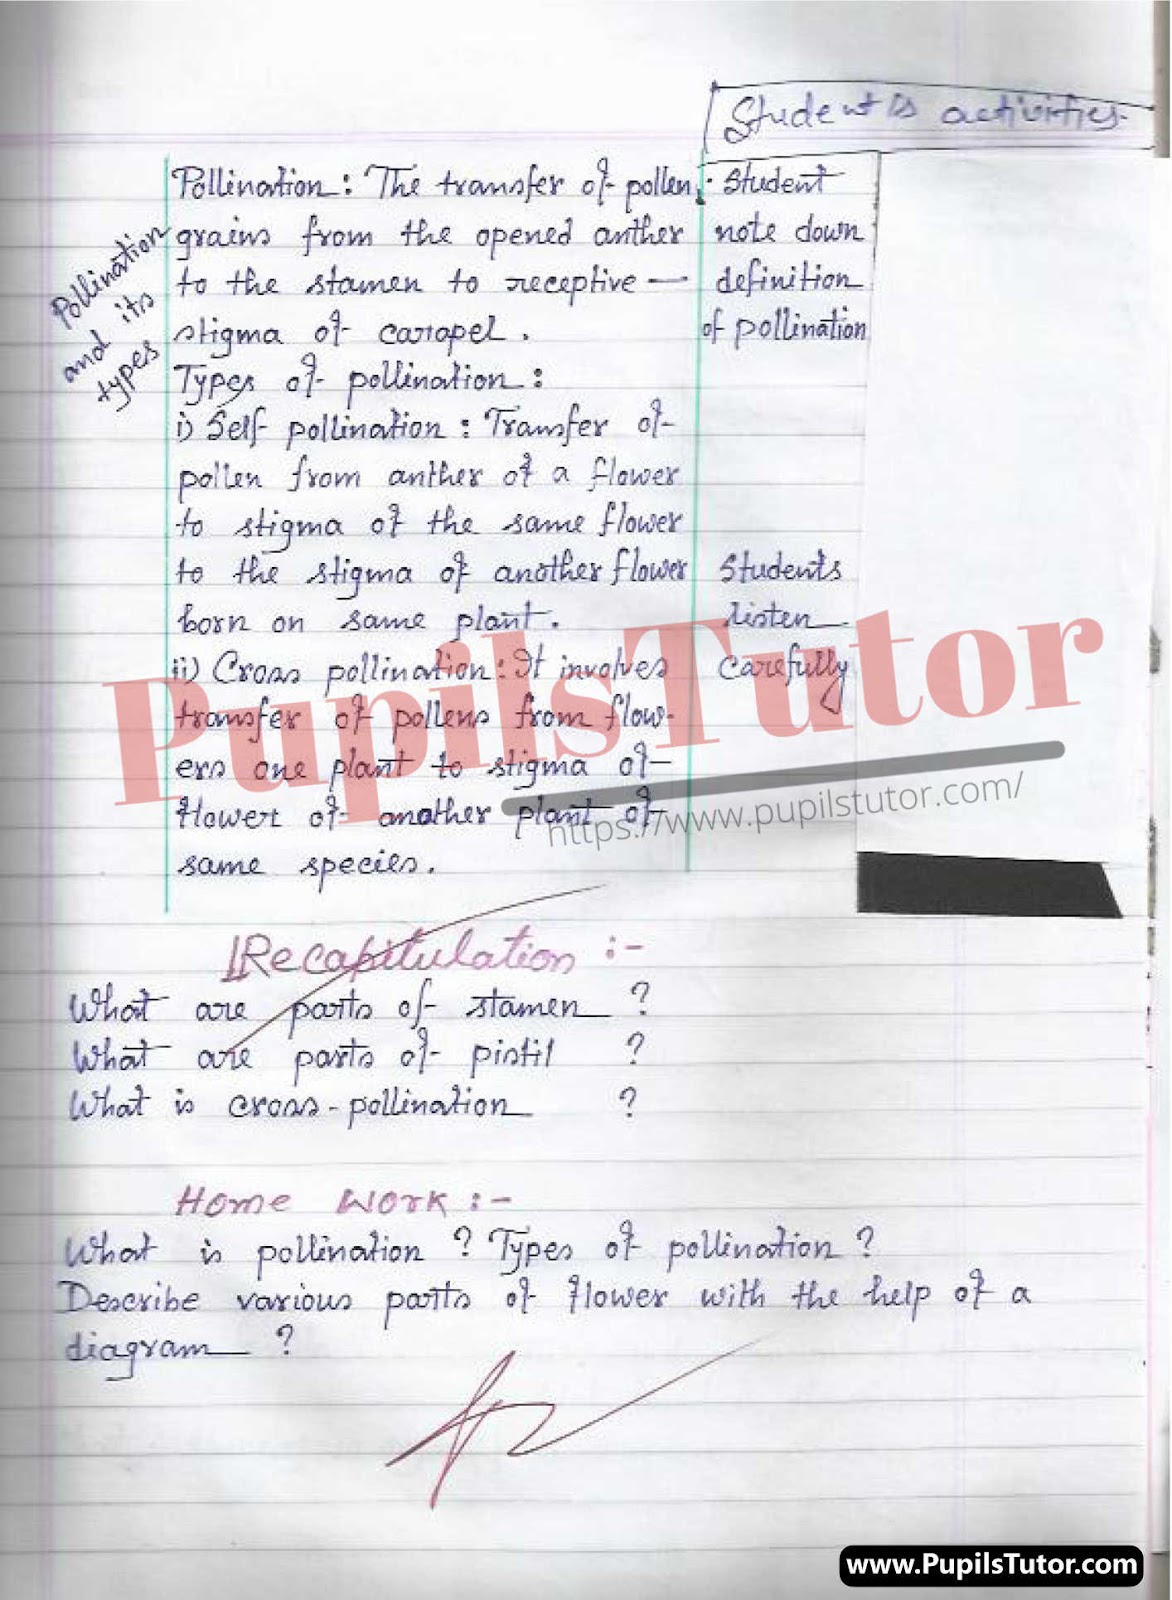 Student's activities-
Pollination and its types
Pollination : The transfer of pollen
grains from the opened anther
to the stamen to receptive —
stigma of carapel.
Types of pollination :
i) Self pollination : Transfer of
pollen from anther of a flower
to stigma of the same flower
to the stigma of another flower
born on same plant.
ii) Cross pollination : It involves
transfer of pollens from flow-
ers one plant to stigma of
flower of another plant of
same species.
· Student
note down
definition
of pollination
Students
listen
Carefully
PupilsTutor
https://www.pupilstutor.com/
Recapitulation :-
What are parts of stamen ?
What are parts of pistil ?
What is cross-pollination ?
Home Work :-
What is pollination ? Types of pollination ?
Describe various parts of flower with the help of a
diagram ?
www.PupilsTutor.com